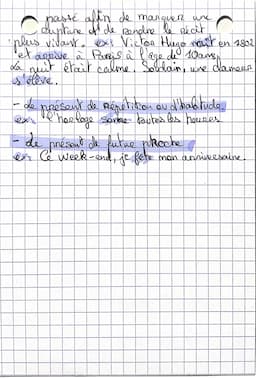 passé afin de marquer une
rupture et de rendre le récit
plus vivant. ex: Victor Hugo nait en 1802
et arrive à Paris à l'age de 10ans.
La nuit était calme. Soudain, une clameur
s'élève.
- Le présent de répétition ou d'habitude
ex: l'horloge sonne toutes les heures.
- Le présent de futur proche
ex: Ce week-end, je fête mon anniversaire.